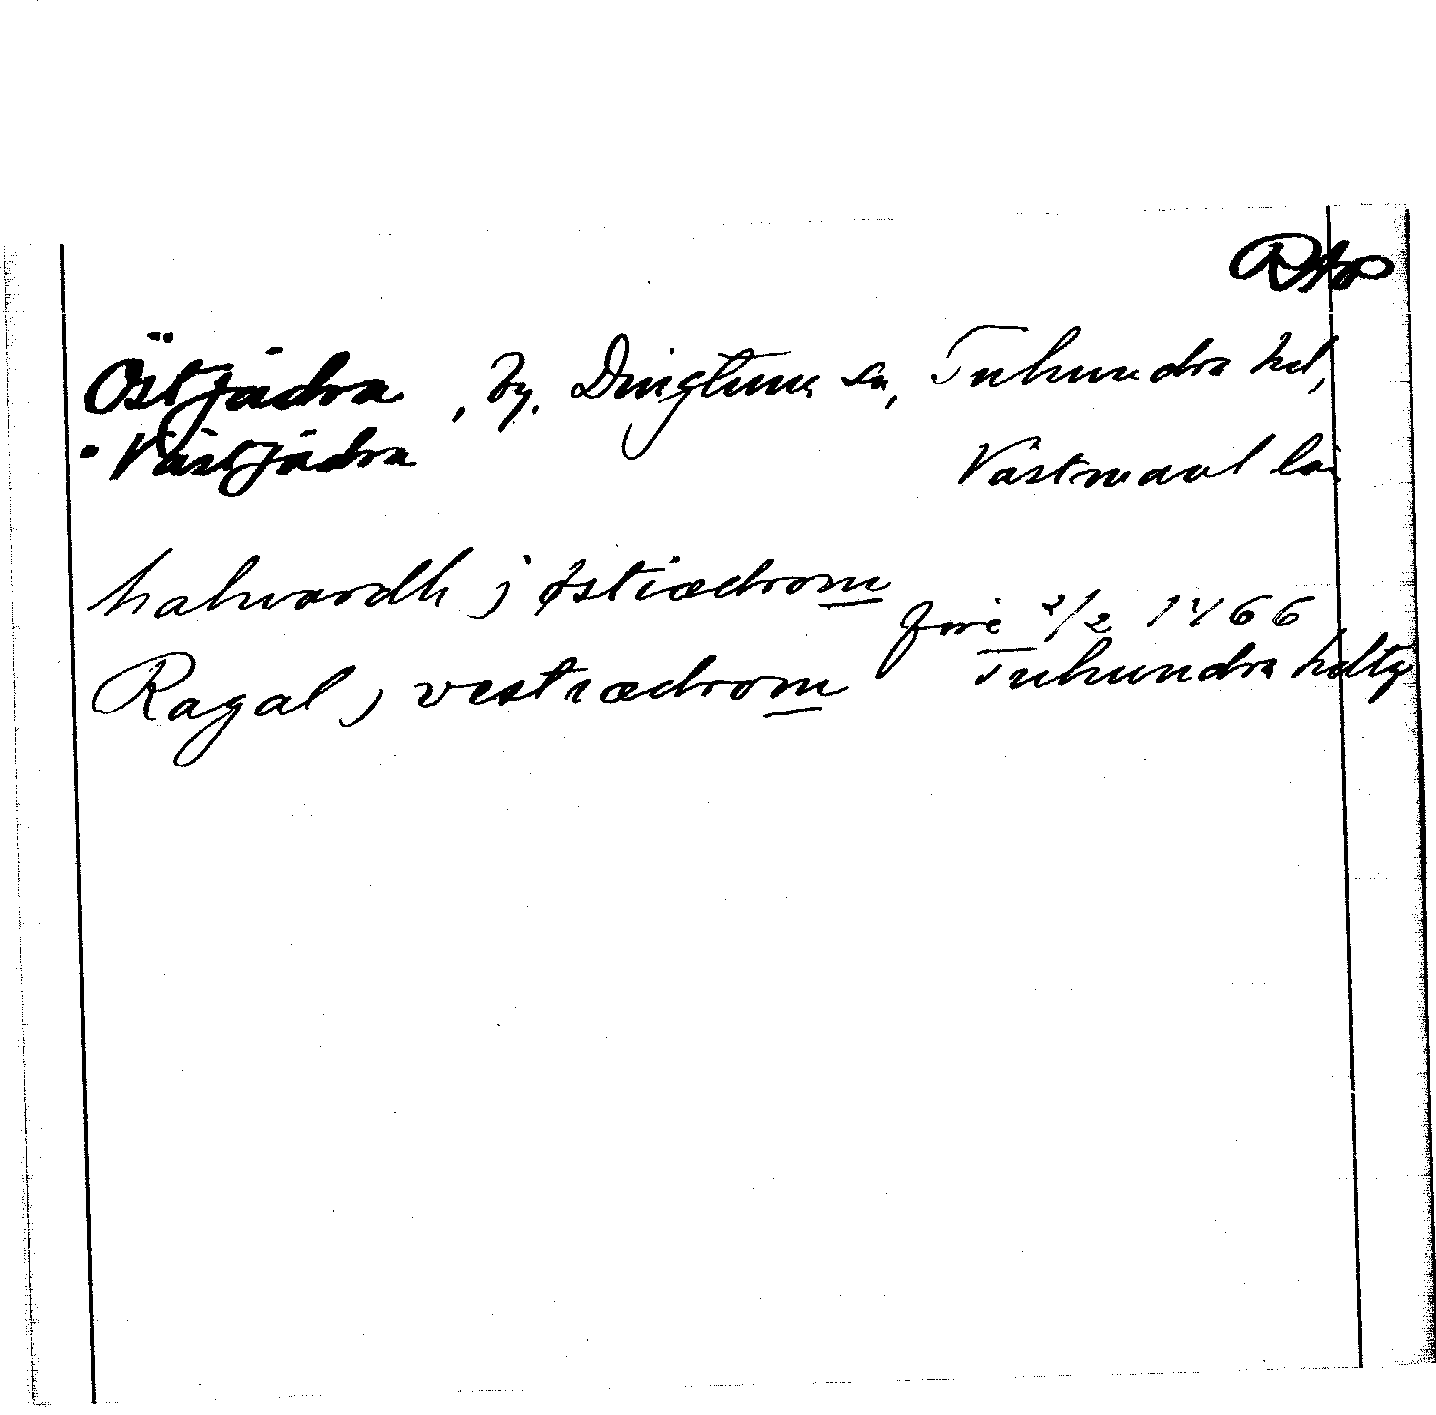 Östjädra, by, Dingtuna sn, Tuhundra hd,
Västjädra Västmanl län
halwardh j østiædrom före 2/2 1466
Ragal j vestiædrom Tuhundra hdtg